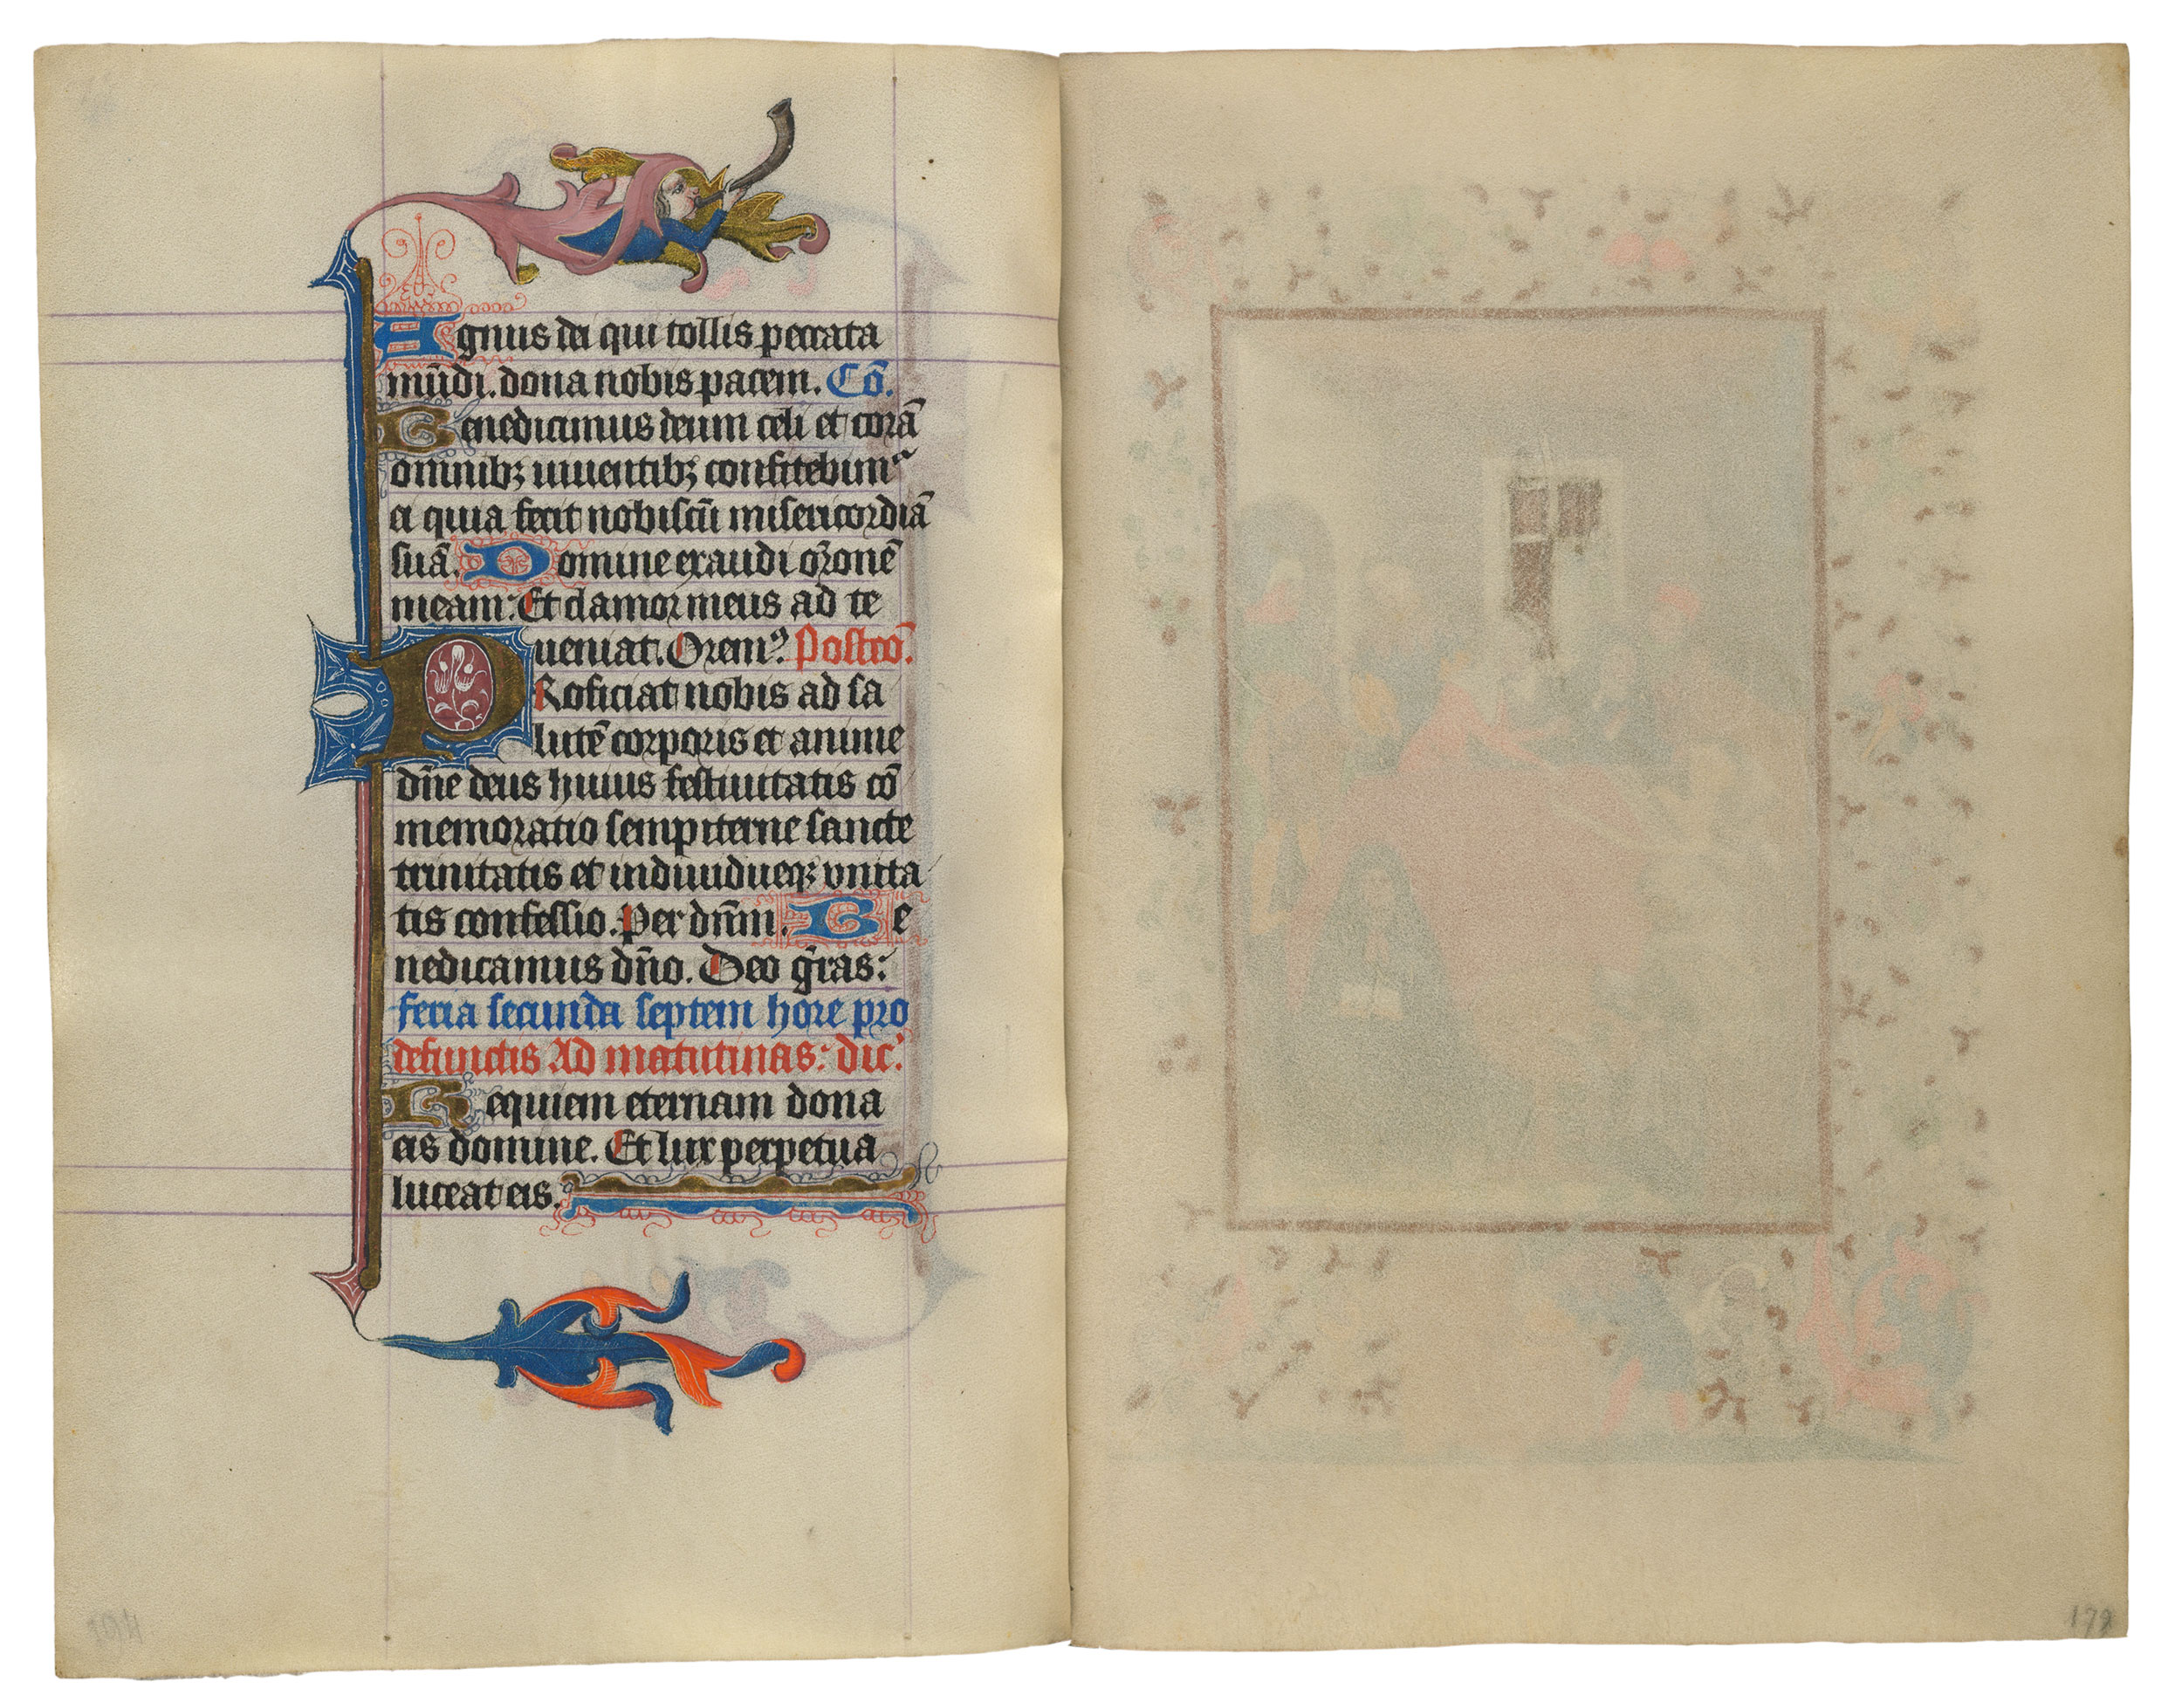 Agnus dei qui tollis peccata
mūdi. dona nobis pacem. Cō.
Benedicimus deum celi et corā
omnibꝫ uiuentibꝫ confitebimꝰ
ei quia fecit nobiscū misericordiā
suā. Domine exaudi orōnē
meam: Et clamor meus ad te
ueniat. Oremꝰ. Postcō.
PRoficiat nobis ad sa
lutē corporis et anime
dn̄e deus huius festiuitatis cō
memoratio sempiterne sancte
trinitatis et indiuidueqꝫ vnita
tis confessio. Per dn̄m. Be
nedicamus dn̄o. Deo gr̄as:
feria secunda septem hore pro
defunctis Ad matutinas: dic̄
Requiem eternam dona
eis domine. Et lux perpetua
luceat eis.